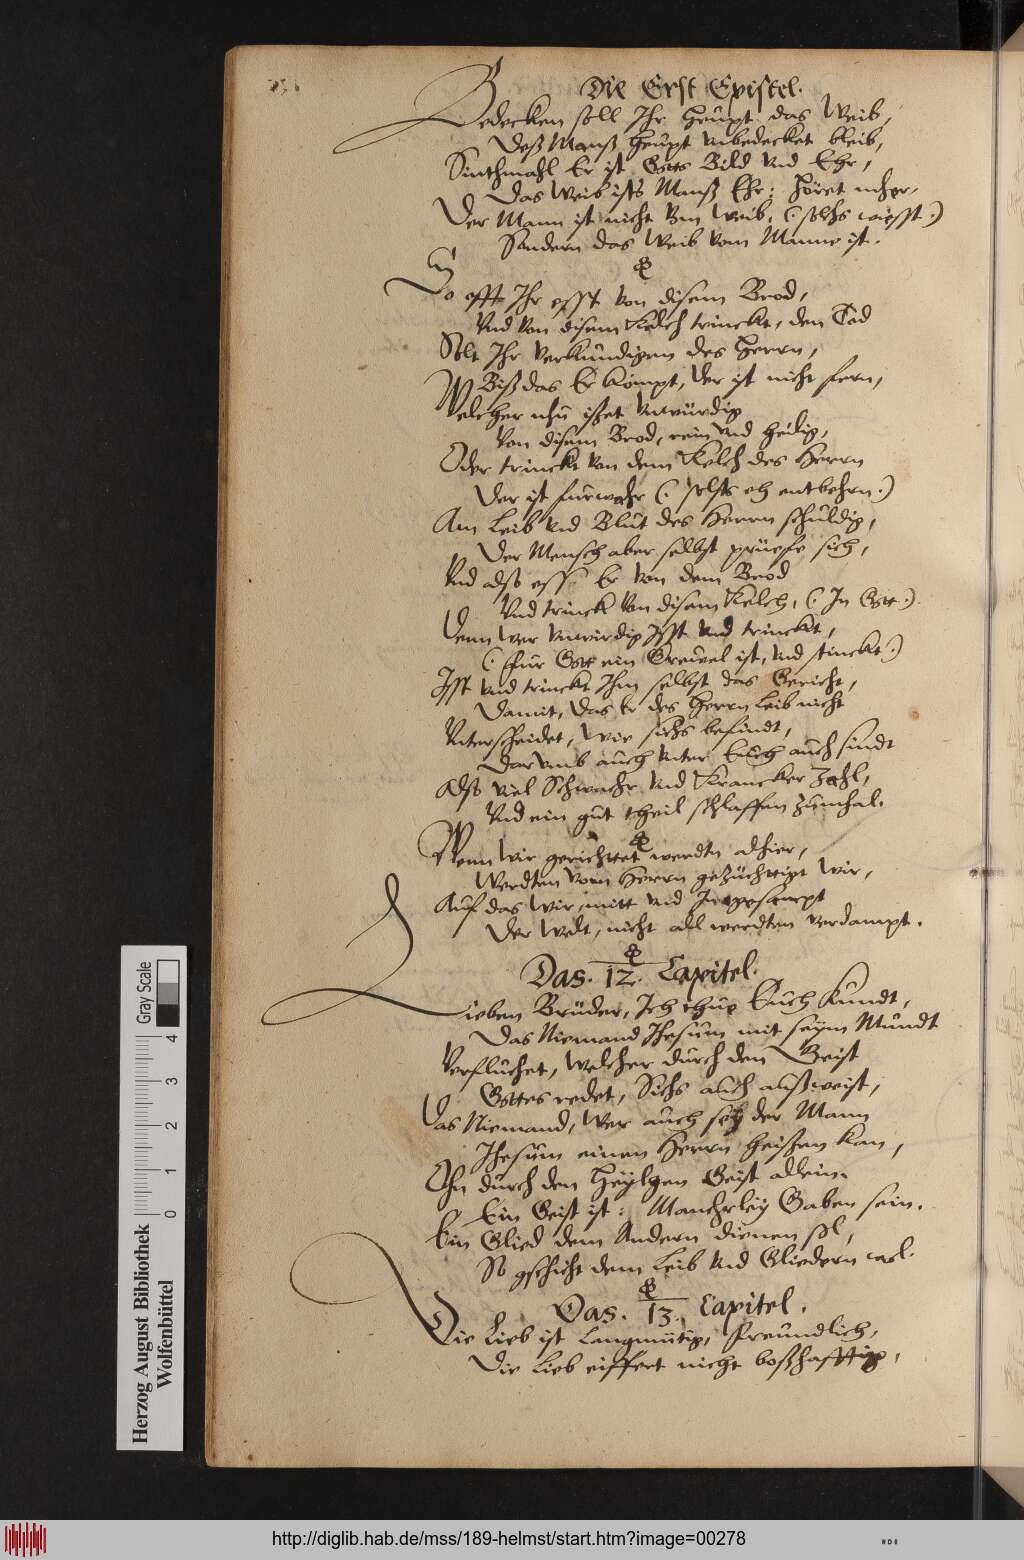 Die Erst Epistel.
Bedecken soll Ihr Heupt das Weib,
Deß Manß Heupt vnbedecket bleib,
Sinthmahl Er ist Gotts Bild vnd Ehr,
Das Weib ists Manß Ehr: höret mher,
Der Mann ist nicht vom Weib, (: solchs wisst :)
Sondern das Weib vom Manne ist.
So offt Ihr esst von disem Brod,
Vnd von disem Kelch trinckt, den Tod
Solt Ihr verkündigen des Herrn,
Biß das Er kompt, der ist nicht fern,
Welcher nhu isset vnwürdig
Von disem Brod, rein vnd heilig,
Oder trinckt von dem Kelch des Herrn
Der ist fürwahr (: solchs entbehrn :)
Am Leib vnd Blut des Herrn schuldig,
Der Mensch aber selbst prüefe sich,
Vnd also ess Er von dem Brod
Vnd trinck von disem Kelch, (: In Gott :)
Denn wer vnwirdig Isst vnd trinckt,
(: für Gott ein Greuel ist, vnd stinckt :)
Isst vnd trinckt Ihm selbst das Gericht,
Damit, das Er des Herrn Leib nicht
Vnterscheidet, wie sichs befindt,
Darumb auch vnter Euch auch sindt
Also viel Schwacher vnd Krancker Zahl,
Vnd ein gut theil schlaffen zumhal.
Wenn wir gerichttet werdtn alhier,
Werdten vom Herrn gezüchttigt wir,
Auf das wir mitt vnd
Der Welt, nicht all werdten verdampt.
Das. 12. Capitel.
Lieben Brüder, Ich thue Euch kundt,
Das Niemand Jhesum mit seym Mundt
Verfluchet, welcher durch den Geist
Gottes redet, Sichs auch außweist,
Das Niemand, wer auch sey der Mann
Jhesum einen Herrn heissen kan,
Ohn durch den Heylgen Geist allein.
Ein Geist ist: Mancherley Gaben sein.
Ein Glied dem Andern dienen sol,
So gschicht dem Leib vnd Gliedern wol.
Das. 13. Capitel.
Die Lieb ist Langmütig, freundlich,
Die Lieb eiffert nicht boßhafftig,
Herzog August Bibliothek
Wolfenbüttel
0 1 2 3 4
Gray Scale
http://diglib.hab.de/mss/189-helmst/start.htm?image=00278